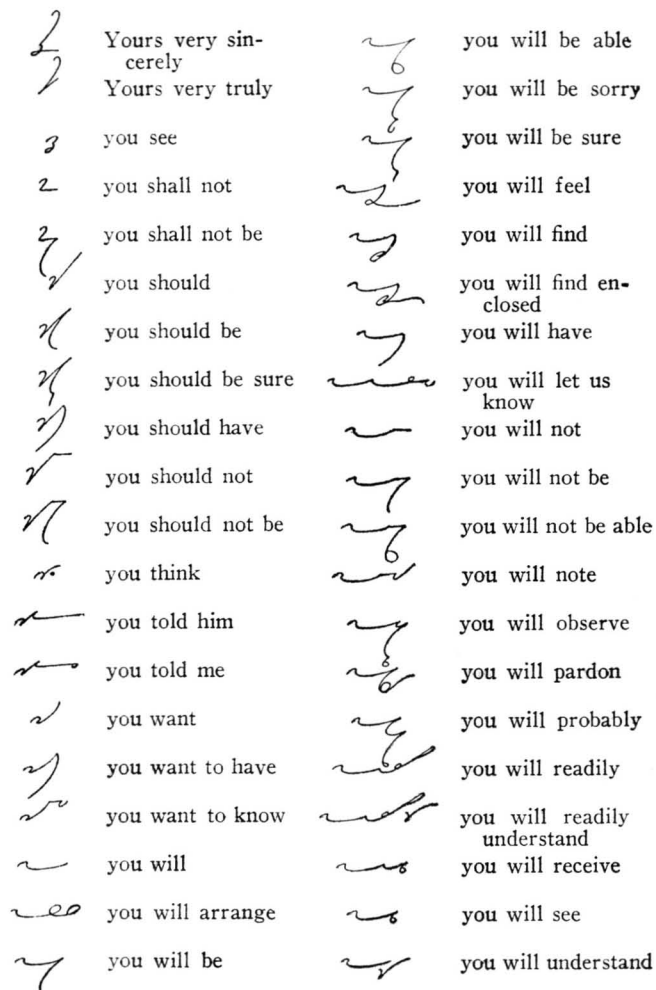 Yours very sin-
cerely
Yours very truly
you see
you shall not
you shall not be
you should
you should be
you should be sure
you should have
you should not
you should not be
you think
you told him
you told me
you want
you want to have
you want to know
you will
you will arrange
you will be
you will be able
you will be sorry
you will be sure
you will feel
you will find
you will find en-
closed
you will have
you will let us
know
you will not
you will not be
you will not be able
you will note
you will observe
you will pardon
you will probably
you will readily
you will readily
understand
you will receive
you will see
you will understand